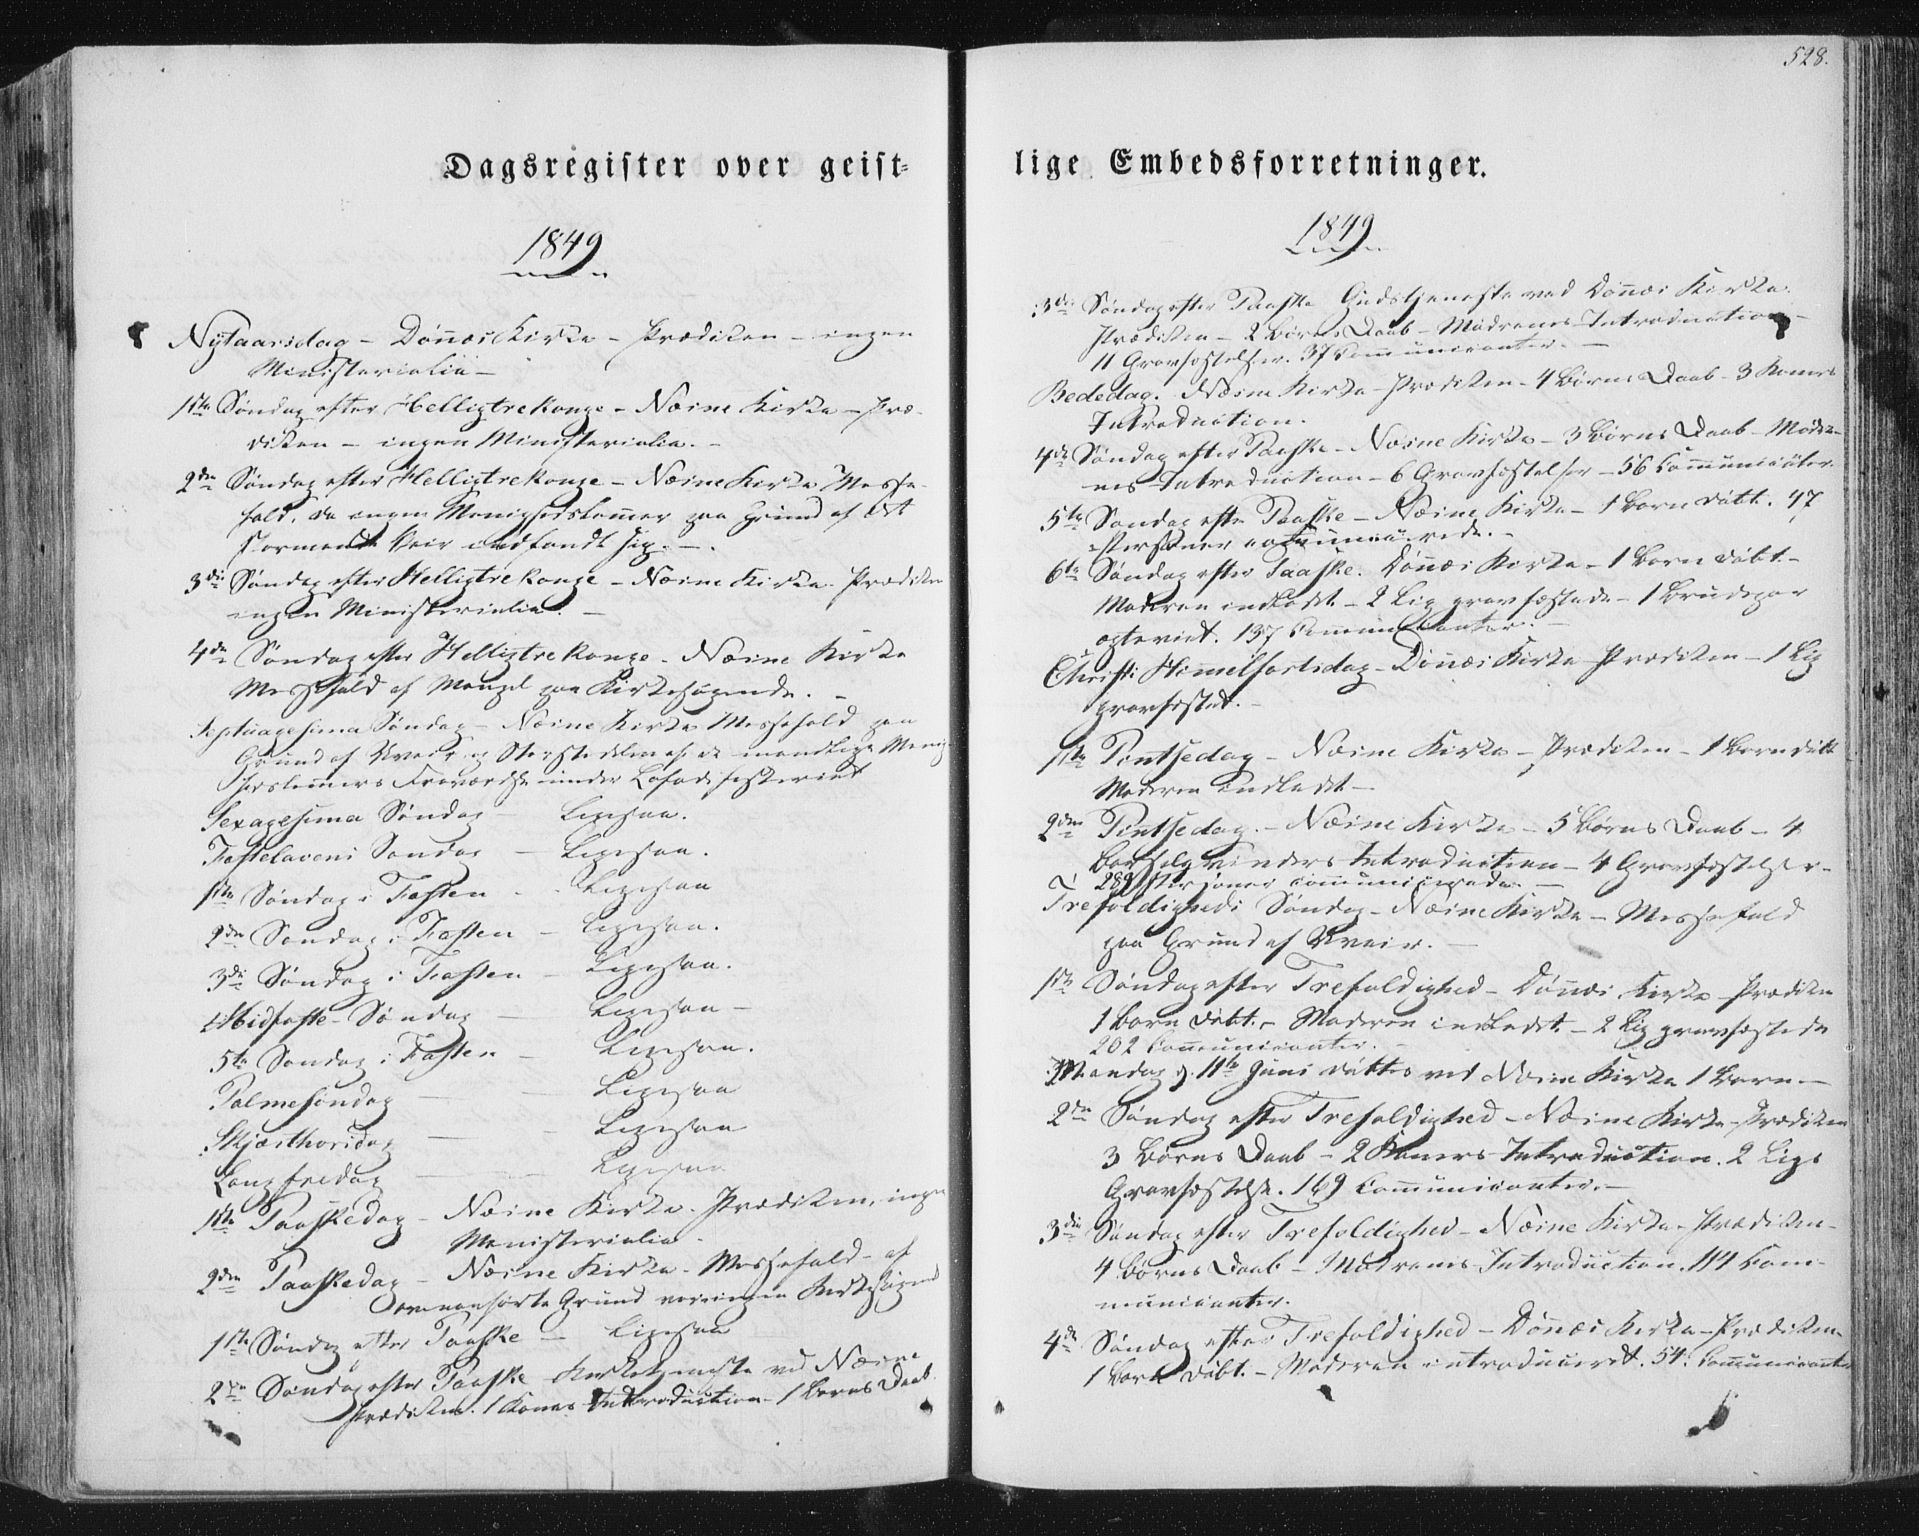 528.
Dagsregister over geist-
lige Embedsforretninger.
1849
Nytaarsdag - Dönnæs Kirke - Prædiken - ingen
Ministerialia -
1ste Søndag efter Helligtrekonge - Næsne Kirke - Præ-
diken - ingen Ministerialia. -
2den Søndag efter Helligtrekonge - Næsne Kirke Messe-
fald, da ingen Menighedslemmer paa Grund af det
stormende Veir indfandt sig. -
3die Søndag efter Helligtrekonge - Næsne Kirke. Prædiken
ingen Ministerialia. -
4de Søndag efter Helligtrekonge - Næsne Kirke
Messefald af Mangel paa Kirkesøgende. -
Septuagesima Søndag - Næsne Kirke Messefald paa
Grund af Uveir og Størstedelen af de mandlige Menig-
hedslemmers Fraværelse under Lofodfiskeriet
Sexagesima Søndag - Ligesaa.
Fastelavens Søndag - Ligesaa.
1ste Søndag i Fasten - Ligesaa
2den Søndag i Fasten - Ligesaa.
3die Søndag i Fasten - Ligesaa.
Midfaste-Søndag - Ligesaa -
5te Søndag i Fasten - Ligesaa.
Palmesøndag - Ligesaa
Skjærthorsdag - Ligesaa
Langfredag - Ligesaa
1ste Paaskedag - Næsne Kirke. Prædiken, ingen
Ministerialia -
2den Paaskedag - Næsne Kirke - Messefald - af
ovenanførte Grund
1ste Søndag efter Paaske - Ligesaa
2den Søndag efter Paaske Kirketjeneste ved Næsne
Prædiken. 1 Kones Introduction - 1 Barns Daab.
1849
3die Søndag efter Paaske Gudstjeneste ved Dönnæs Kirke.
Prædiken - 2 Børns Daab - Mødrenes Introduction -
11 Gravfæstelser. 37 Communicanter. -
Bededag. Næsne Kirke - Prædiken - 4 Børns Daab - 3 Koners
Introduction.
4de Søndag efter Paaske - Næsne Kirke - 3 Børns Daab - Mødre-
nes Introduction - 6 Gravfæstelser - 56 Communicanter
5te Søndag efter Paaske - Næsne Kirke - 1 Barn døbt. 47
Personer communicerede. -
6te Søndag efter Paaske. Dönnæs Kirke - 1 Barn døbt. -
Moderen indledt - 2 Lig gravfæstede - 1 Brudepar
ægteviet. 137 Communicanter. -
Christi Himmelfartsdag - Dönnæs Kirke Prædiken - 1 Lig
gravfæstet. -
1ste Pintsedag - Næsne Kirke - Prædiken - 1 Barn døbt
Moderen indledt -
2den Pintsedag. - Næsne Kirke - 5 Børns Daab - 4
Barselqvinders Introduction - 4 Gravfæstelser -
289 Personer communicerede. -
Trefoldigheds Søndag - Næsne Kirke - Messefald
paa Grund af Uveir. -
1ste Søndag efter Trefoldighed - Dönnæs Kirke - Prædiken
1 Barn døbt. - Moderen indledet. - 2 Lig gravfæstede
202 Communicanter. -
Mandag d. 11te Juni døbtes ved Næsne Kirke 1 Barn. -
2den Søndag efter Trefoldighed - Næsne Kirke - Prædiken
3 Børns Daab - 2 Koners Introduction. 2 Ligs
Gravfæstelse. 169 Communicanter. -
3die Søndag efter Trefoldighed - Næsne Kirke - Prædiken -
4 Børns Daab - Mødrenes Introduction. 114 Com-
municanter.
4de Søndag efter Trefoldighed - Dönnæs Kirke - Prædiken
1 Barn døbt. - Moderen introduceret. 54. Communicanter